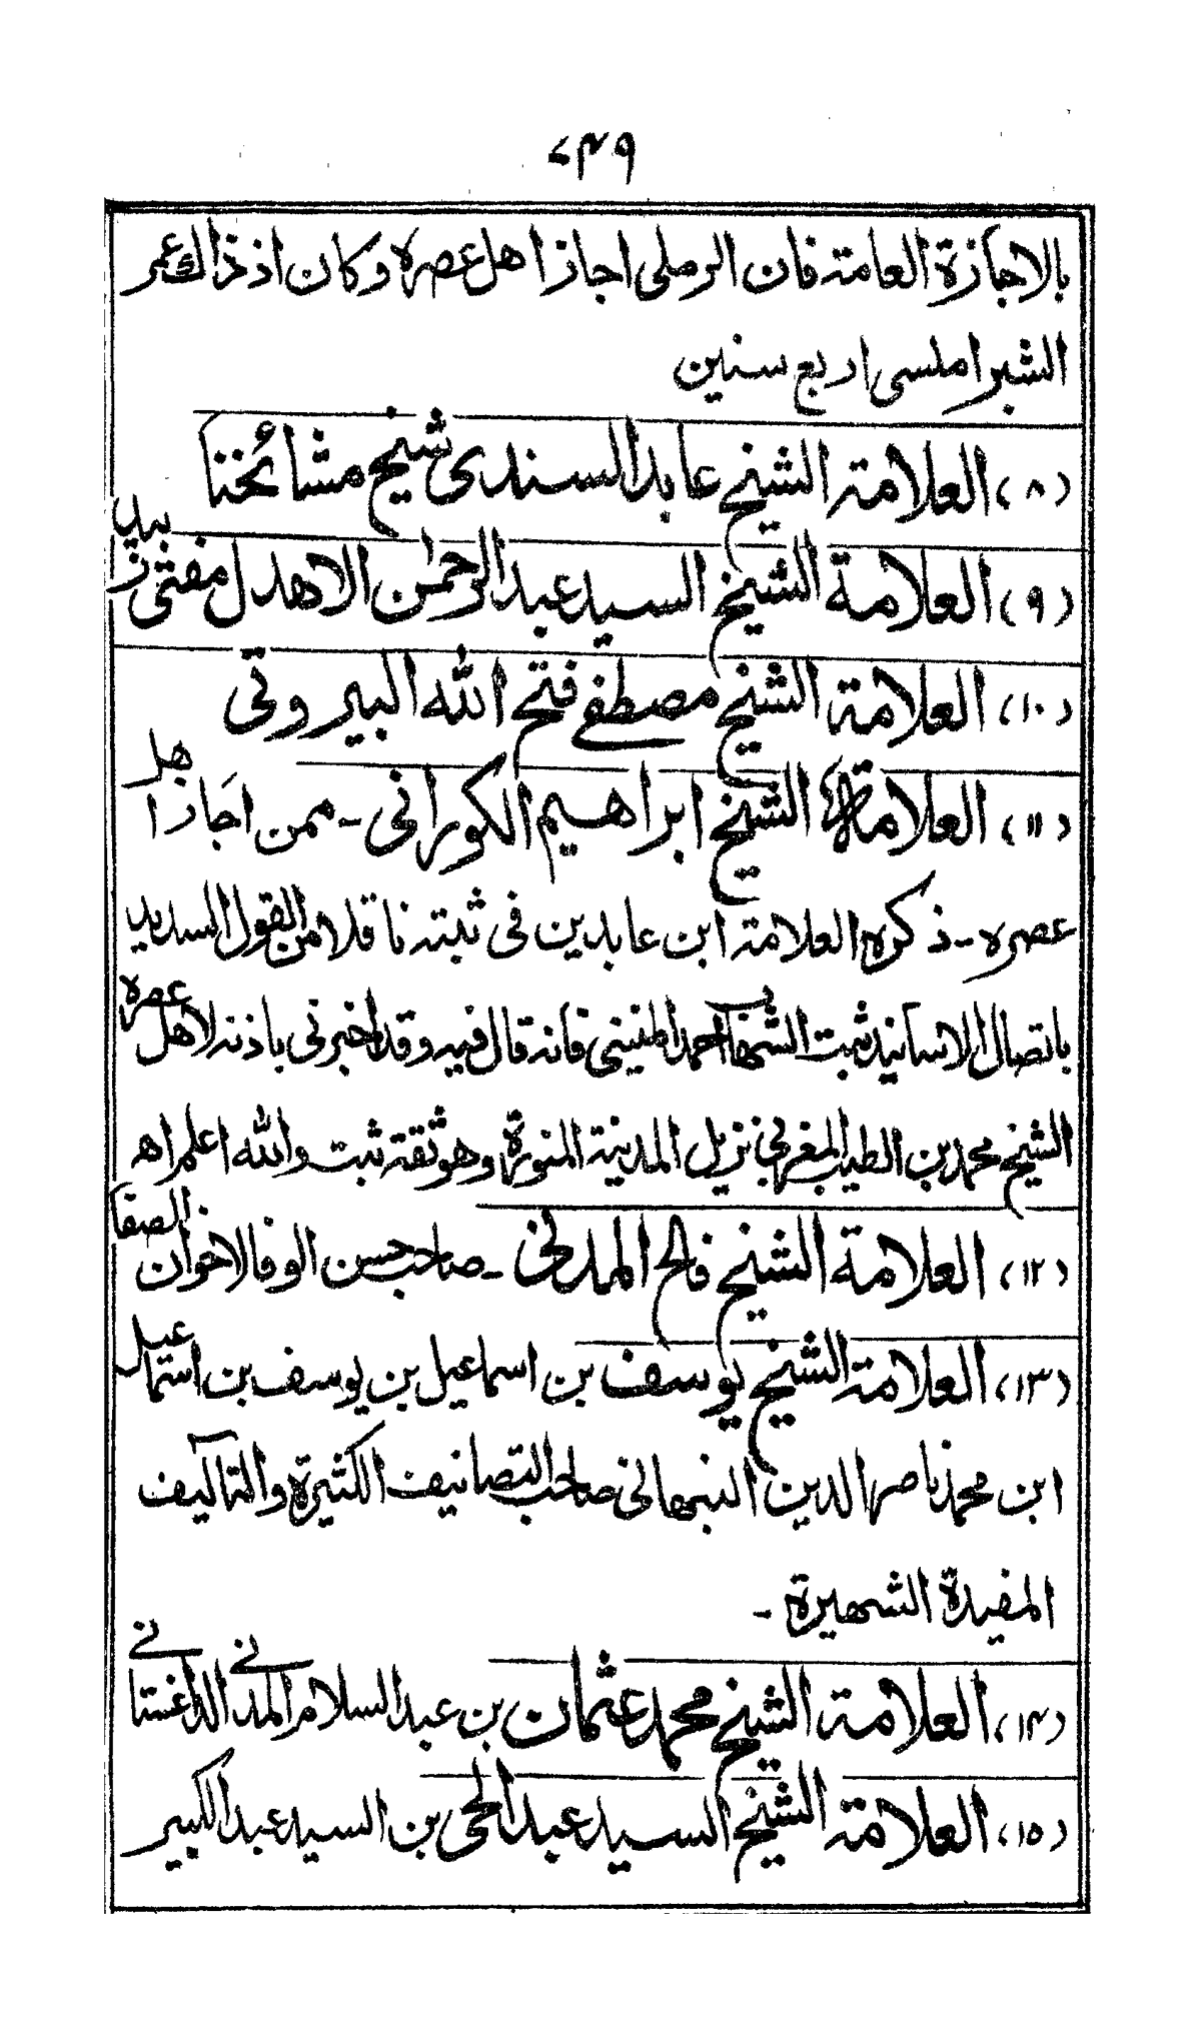 ۷۴۹
بالاجازة العامة فان الرملی اجاز اهل عصره وکان اذ ذاك عمر
الشبراملسی اربع سنین
(۸) العلامة الشیخ عابد السندی شیخ مشائخنا
(۹) العلامة الشیخ السید عبد الرحمٰن الاهدل مفتی زبید
(۱۰) العلامة الشیخ مصطفی فتح الله البیروتی
(۱۱) العلامة الشیخ ابراهیم الکورانی - ممن اجاز اهل
عصره - ذکره العلامة ابن عابدین فی ثبته ناقلا من القول السدید
باتصال الاسانید ثبت الشهاب احمد المنینی فانه قال فیه وقد اخبرنی باذنه لاهل عصره
الشیخ محمد بن الطیب المغربی نزیل المدینة المنورة وهو ثقة ثبت والله اعلم اه
(۱۲) العلامة الشیخ فالح المدنی - صاحب حسن الوفا لاخوان الصفا
(۱۳) العلامة الشیخ یوسف بن اسماعیل بن یوسف بن اسماعیل
ابن محمد ناصر الدین النبهانی صاحب التصانیف الکثیرة والتآلیف
المفیدة الشهیرة -
(۱۴) العلامة الشیخ محمد عثمان بن عبد السلام المدنی الداغستانی
(۱۵) العلامة الشیخ السید عبد الحی بن السید عبد الکبیر